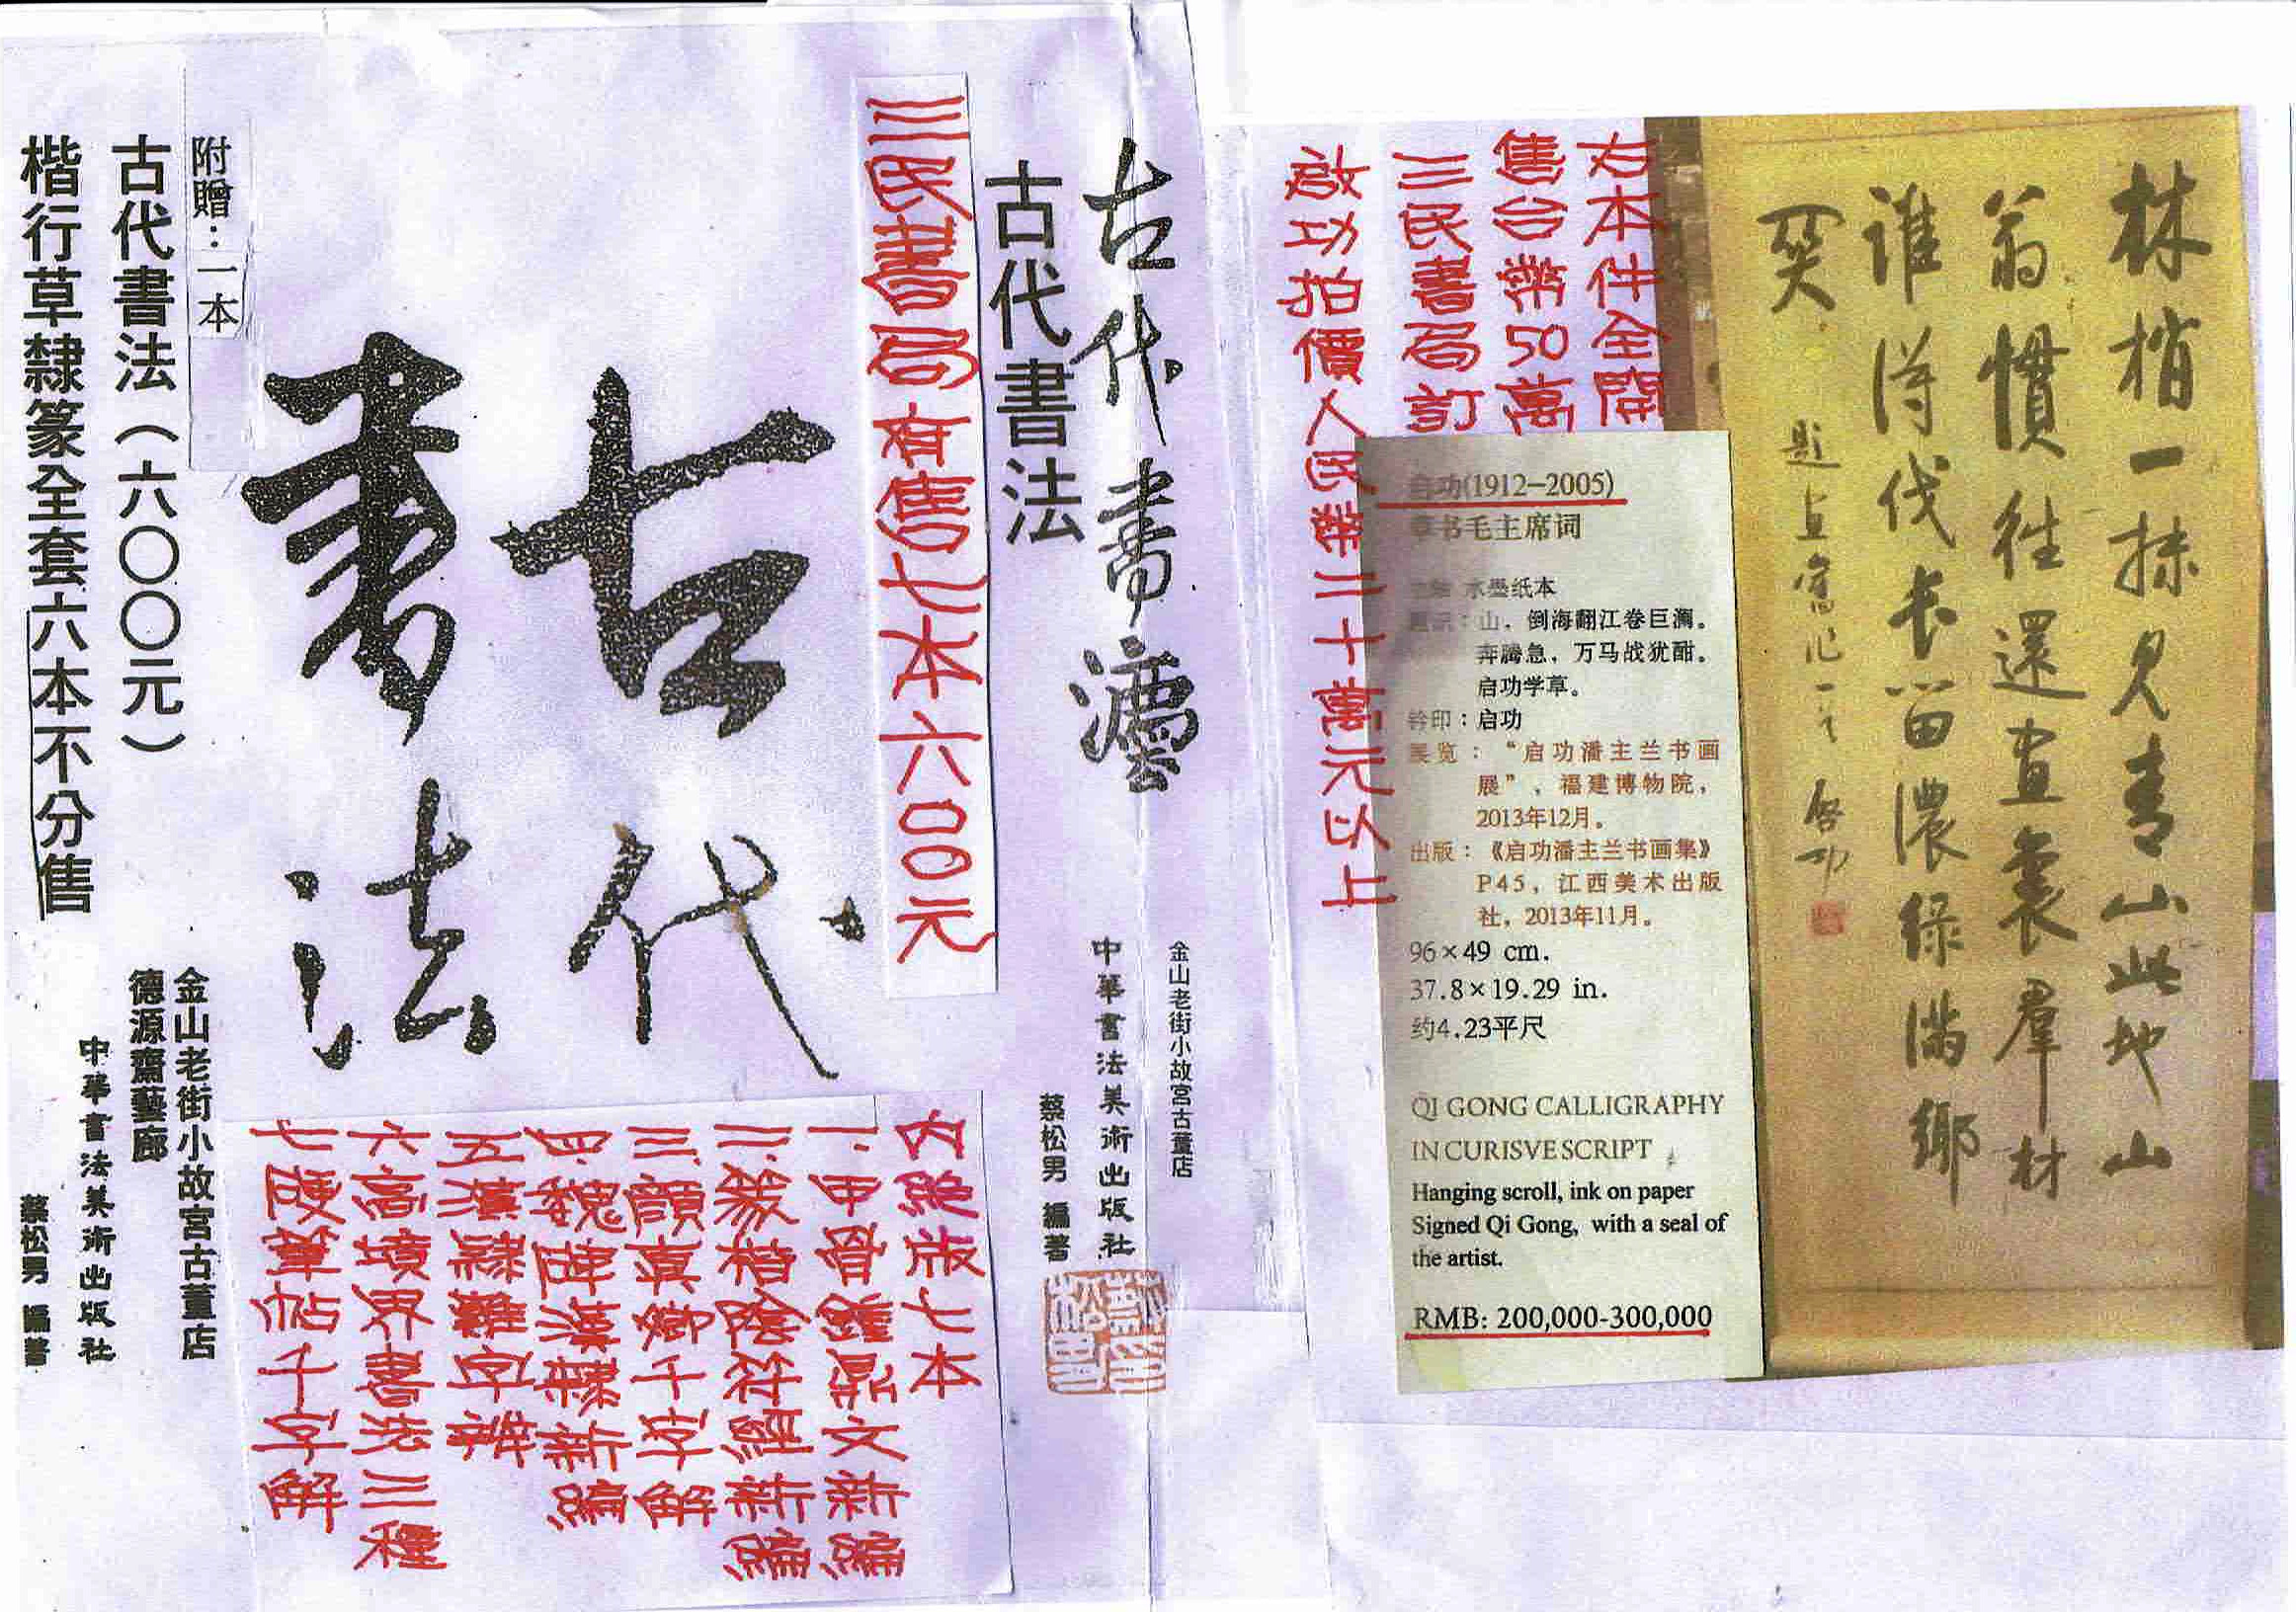 林梢一抹見青山此地山
翁慣往還畫裏羣材
誰得伐長留濃綠滿鄉
啓功
右本件全開
售台幣50萬
三民書局訂
啟功拍價人民幣二十萬元以上
启功(1912-2005)
草书毛主席词
水墨纸本
题识：山，倒海翻江卷巨澜。
奔腾急，万马战犹酣。
启功学草。
钤印：启功
展览：“启功潘主兰书画
展”，福建博物院，
2013年12月。
出版：《启功潘主兰书画集》
P45，江西美术出版
社，2013年11月。
96×49 cm.
37.8×19.29 in.
约4.23平尺
QI GONG CALLIGRAPHY
IN CURISVE SCRIPT
Hanging scroll, ink on paper
Signed Qi Gong, with a seal of
the artist.
RMB: 200,000-300,000
古代書灋
金山老街小故宮古董店
中華書法美術出版社
古代書法
蔡松男 編著
三民書局有售七本六00元
古代
書法
內絕版七本
一.甲骨鐘鼎文新編
二.篆楷陰符經新編
三.顏真卿千字解
四.魏碑漢隸新編
五漢隸難字辨
六高壙界書法三種
七硬筆帖千字解
附贈：二本
古代書法（六〇〇〇元）
楷行草隸篆全套六本不分售
金山老街小故宮古董店
德源齋藝廊
中華書法美術出版社
蔡松男 編著